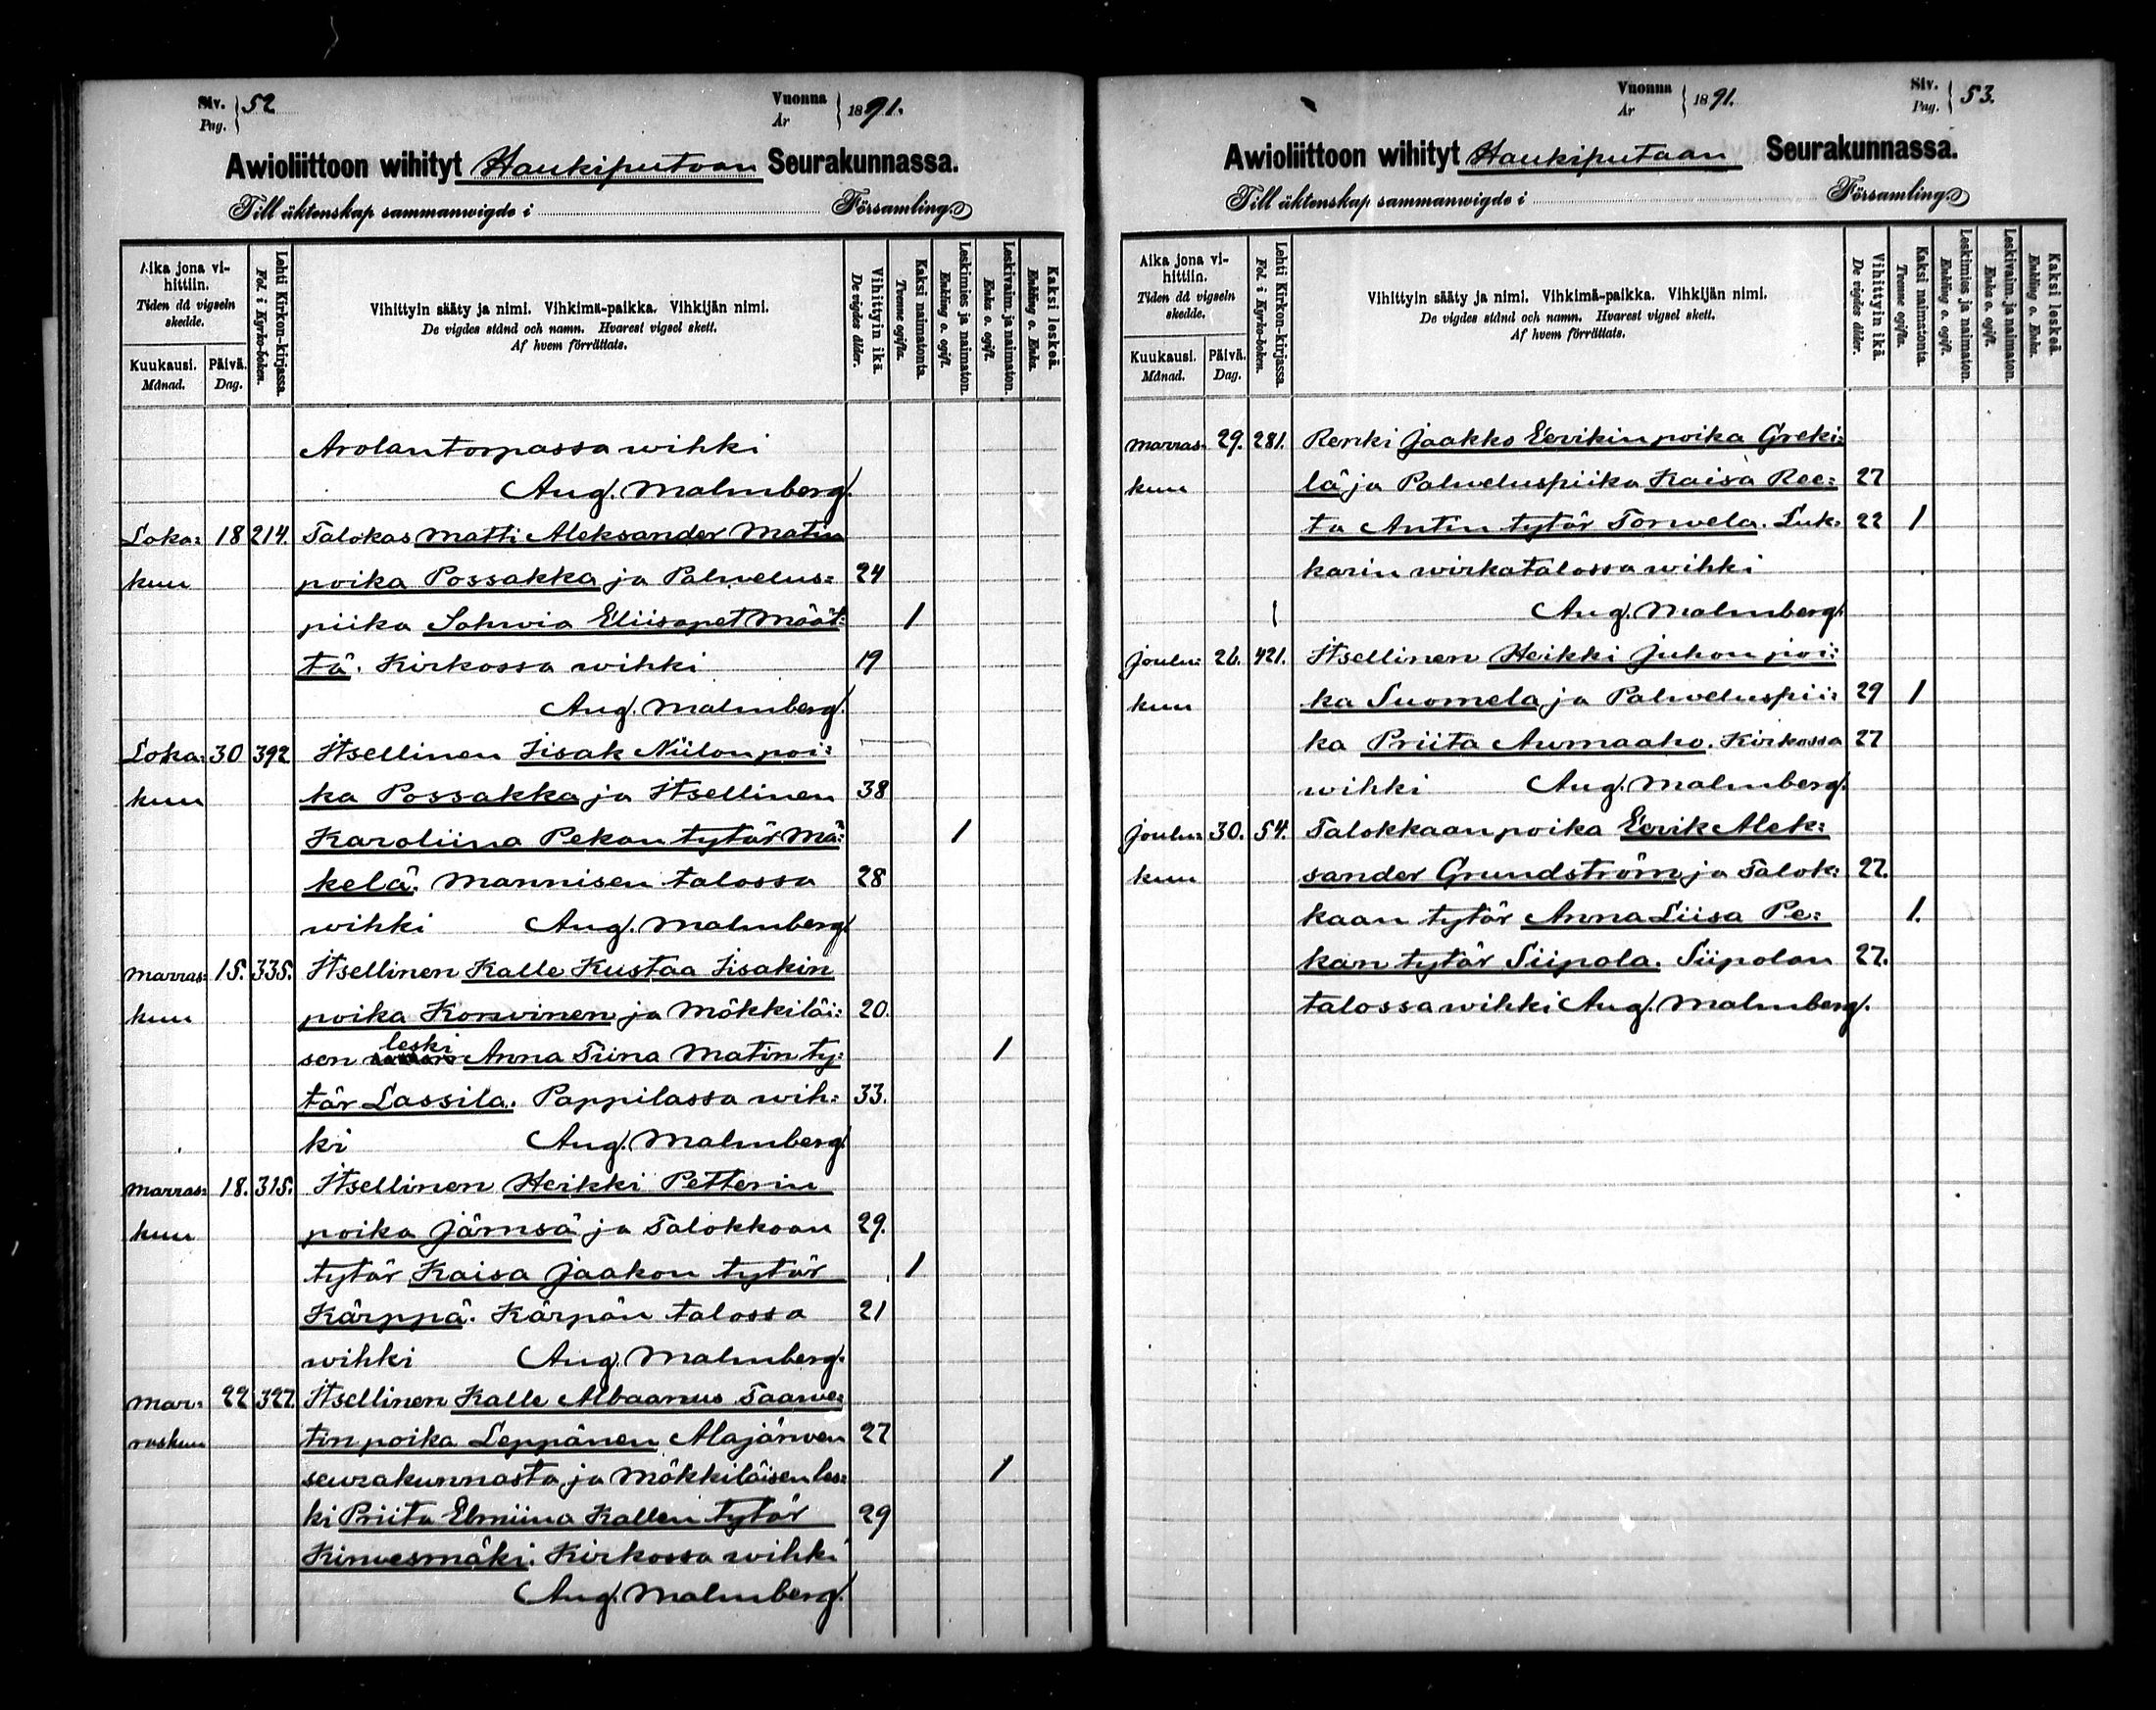 Siv. Pag. } 52
Vuonna År } 1891.
Awioliittoon wihityt Haukiputaan Seurakunnassa.
Till äktenskap sammanwigde i Församling.
Aika jona vihittiin.
Tiden då vigseln skedde.
Kuukausi. Månad.
Päivä. Dag.
Lehti Kirkon-kirjassa. Fol. i Kyrko-boken.
Vihittyin sääty ja nimi. Vihkimä-paikka. Vihkijän nimi.
De vigdes stånd och namn. Hvarest vigsel skett.
Af hvem förrättats.
Vihittyin ikä. De vigdes ålder.
Kaksi naimatonta. Tvenne ogifta.
Leskimies ja naimaton. Enkling o. ogift.
Leskivaim. ja naimaton. Enka o. ogift.
Kaksi leskeä. Enkling o. Enka.
Arolan torpassa wihki
Aug. Malmberg.
Loka= 18 214. Talokas Matti Aleksander Matin
kuu poika Possakka ja Palwelus= 24
piika Sohwia Eliisapet Määt= 1
tä. Kirkossa wihki 19
Aug. Malmberg.
Loka= 30 392 Itsellinen Iisak Niilon poi=
kuu ka Possakka ja Itsellinen 38
Karoliina Pekan tytär Mä= 1
kelä. Mannisen talossa 28
wihki Aug. Malmberg.
Marras= 15. 335. Itsellinen Kalle Kustaa Iisakin
kuu poika Konvinen ja Mökkiläi= 20.
leski
sen Anna Tiina Matin ty= 1
tär Lassila. Pappilassa wih= 33.
ki Aug. Malmberg.
Marras= 18. 315. Itsellinen Heikki Petterin
kuu poika Jämsä ja Talokkaan 29.
tytär Kaisa Jaakon tytär 1
Kärppä. Kärpän talossa 21
wihki Aug. Malmberg.
Mar= 22 327. Itsellinen Kalle Albaanus Taawe=
raskuu tin poika Leppänen Alajärwen 27
seurakunnasta ja Mökkiläisen les= 1
ki Priita Elmiina Kallen tytär 29
Kinwesmäki. Kirkossa wihki
Aug. Malmberg.
Vuonna År } 1891.
Siv. Pag. } 53.
Awioliittoon wihityt Haukiputaan Seurakunnassa.
Till äktenskap sammanwigde i Församling.
Aika jona vihittiin.
Tiden då vigseln skedde.
Kuukausi. Månad.
Päivä. Dag.
Lehti Kirkon-kirjassa. Fol. i Kyrko-boken.
Vihittyin sääty ja nimi. Vihkimä-paikka. Vihkijän nimi.
De vigdes stånd och namn. Hvarest vigsel skett.
Af hvem förrättats.
Vihittyin ikä. De vigdes ålder.
Kaksi naimatonta. Tvenne ogifta.
Leskimies ja naimaton. Enkling o. ogift.
Leskivaim. ja naimaton. Enka o. ogift.
Kaksi leskeä. Enkling o. Enka.
Marras= 29. 281. Renki Jaakko Eerikin poika Greki=
kuu lä ja Palweluspiika Kaisa Ree= 27
ta Antin tytär Torwela. Luk= 22 1
karin wirkatalossa wihki
Aug. Malmberg.
Joulu= 26. 421. Itsellinen Heikki Juhon poi=
kuu ka Suomela ja Palweluspii= 29 1
ka Priita Aumaaho. Kirkossa 27
wihki Aug. Malmberg.
Joulu= 30. 54. Talokkaan poika Eerik Alek=
kuu sander Grundström ja Talok= 27.
kaan tytär Anna Liisa Pe= 1.
kan tytär Siipola. Siipolan 27.
talossa wihki Aug. Malmberg.